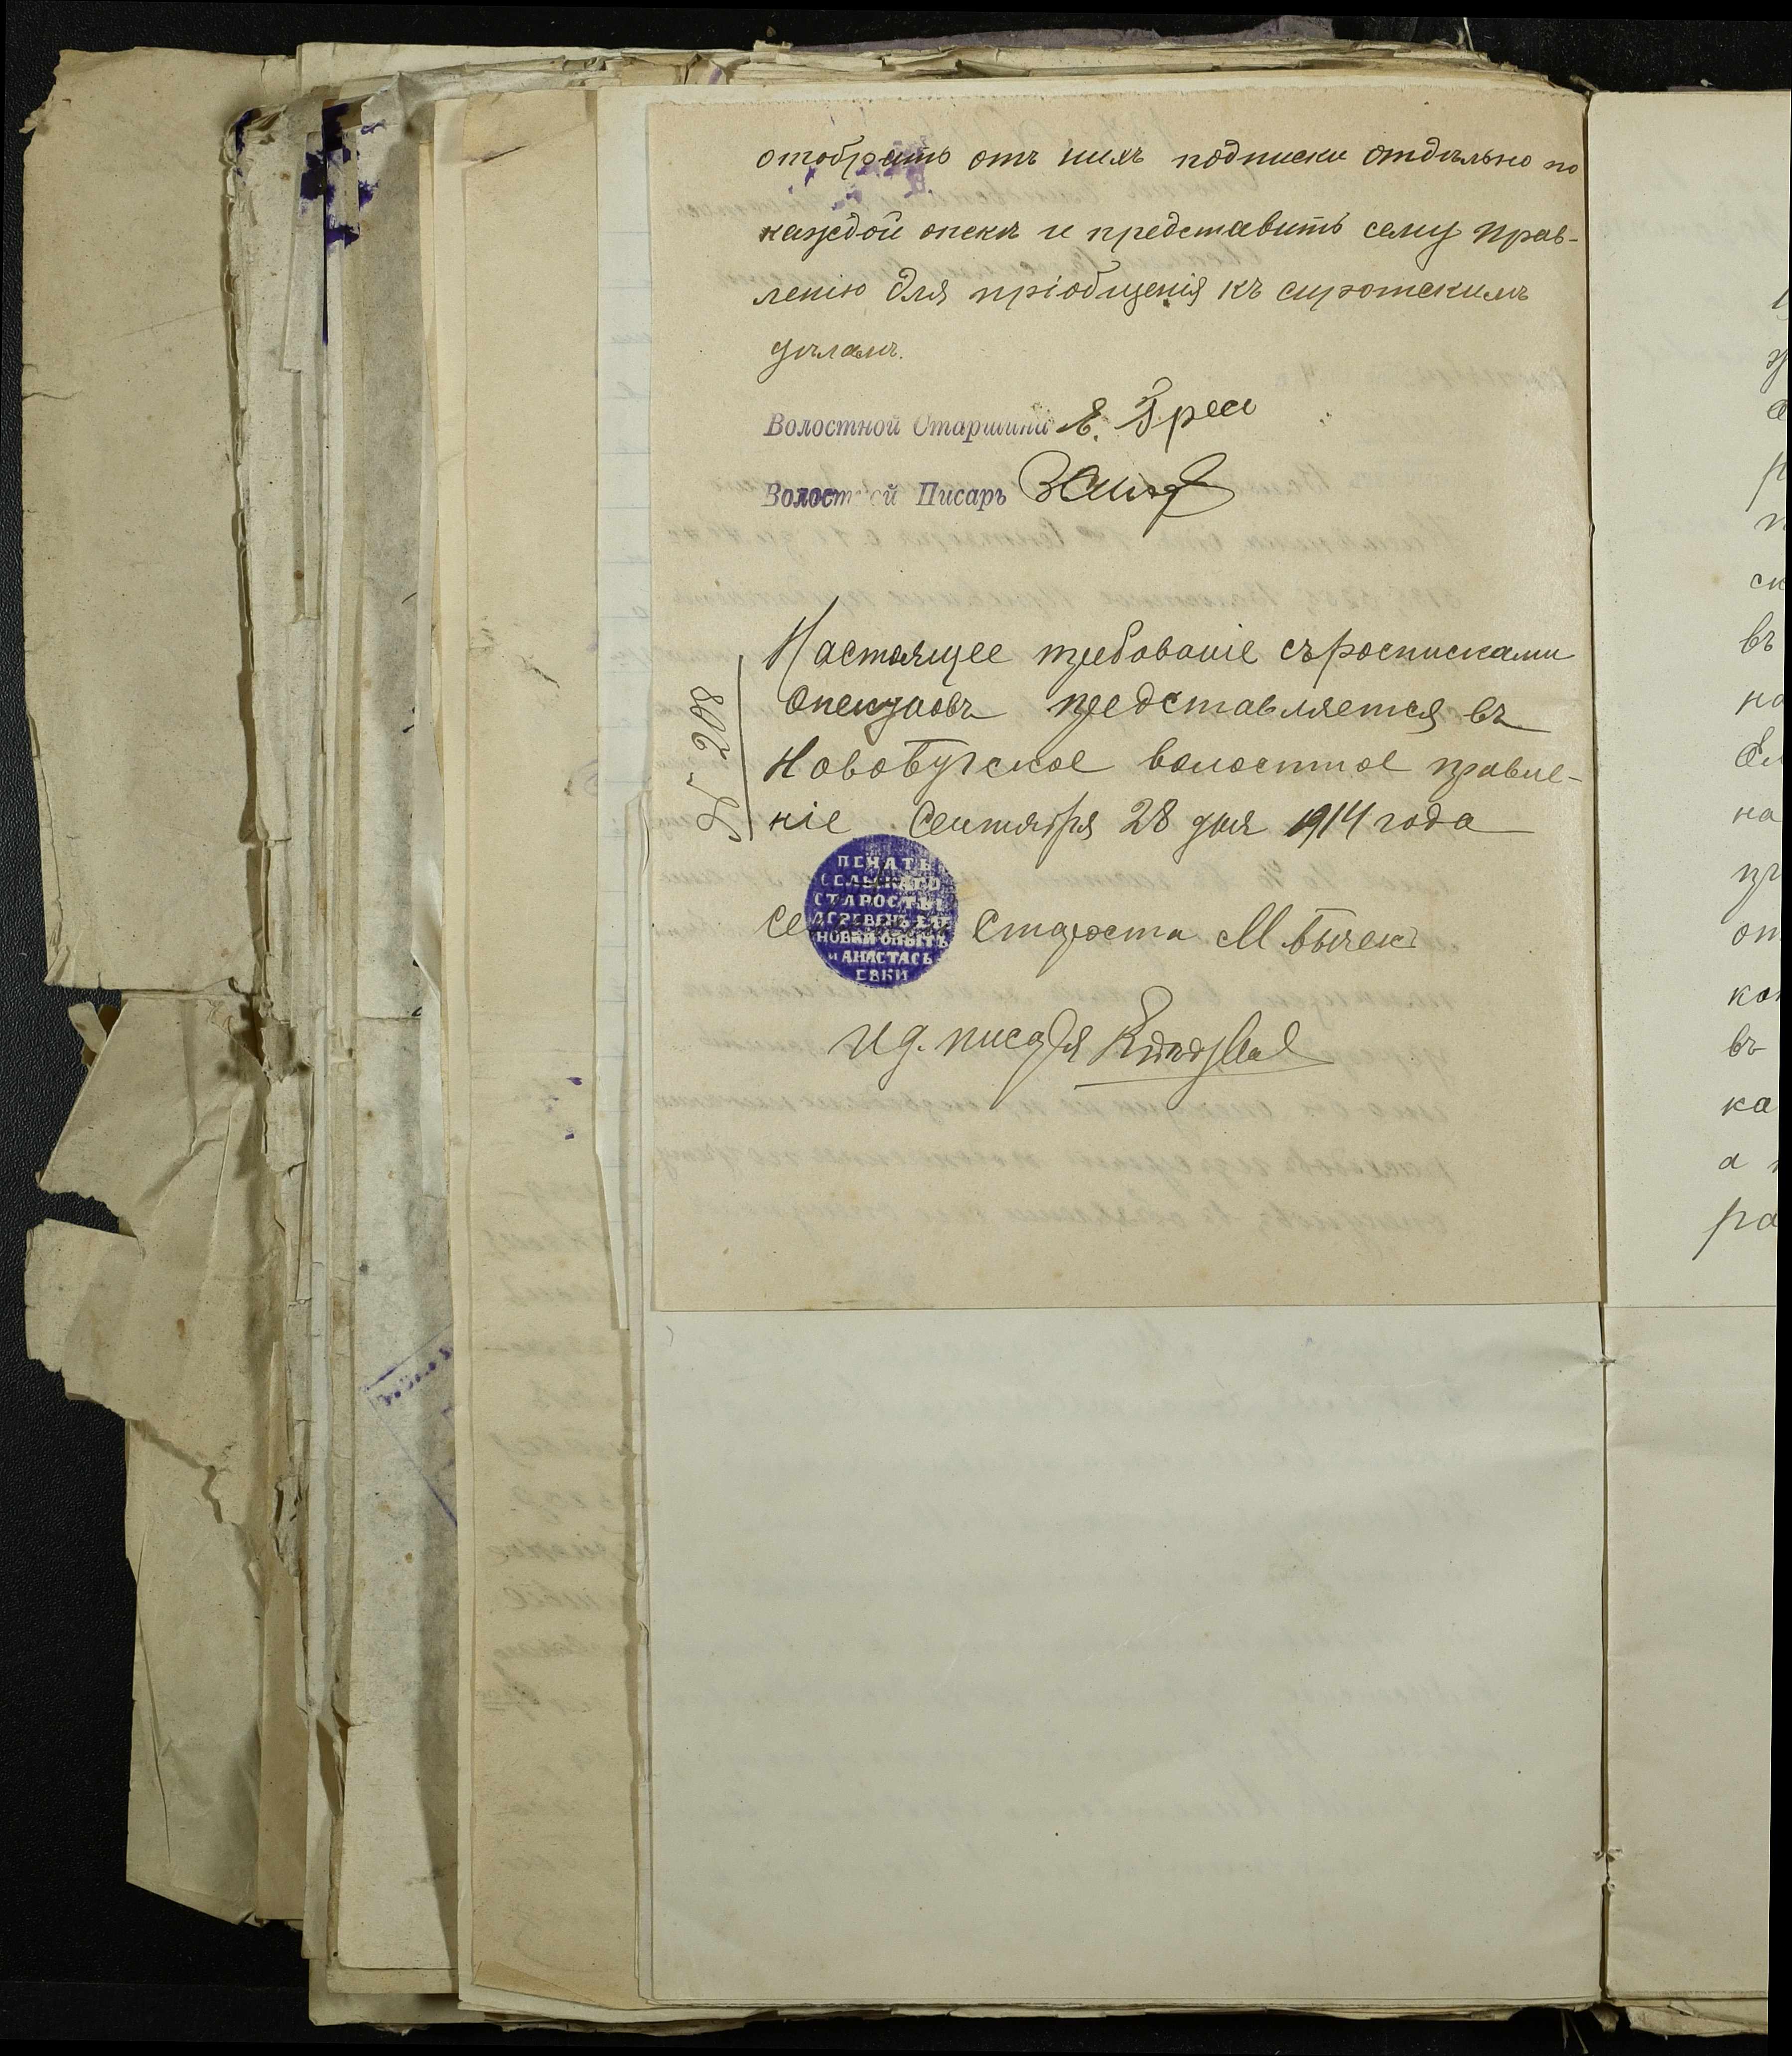 отобрать отъ нихъ подписки отдѣльно по
каждой опекѣ и представить сему прав-
ленію для пріобщенія къ сиротскимъ
дѣламъ.
Волостной Старшина Е. Грес
Волостной Писарь
Настоящее требованіе съ росписками
опекуновъ представляется въ
Новобугское волостное правле-
ніе Сентября 28 дня 1914 года
№ 208
ПЕЧАТЬ
СЕЛЬСКАГО
СТАРОСТЫ
ДЕРЕВЕНЬ ЕЛЕ
НОВКИ ОПЫТЪ
и АНАСТАСЬ
ЕВКИ
Сельскій Староста М Бычек
И д. писаря
въ
на
от
въ
ка
а
ра